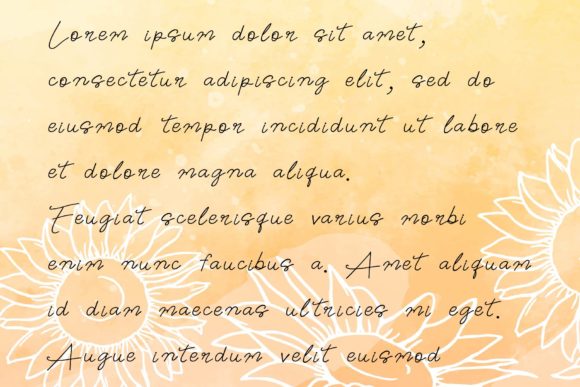 Lorem ipsum dolor sit amet,
consectetur adipiscing elit, sed do
eiusmod tempor incididunt ut labore
et dolore magna aliqua.
Feugiat scelerisque varius morbi
enim nunc faucibus a. Amet aliquam
id diam maecenas ultricies mi eget.
Augue interdum velit euismod